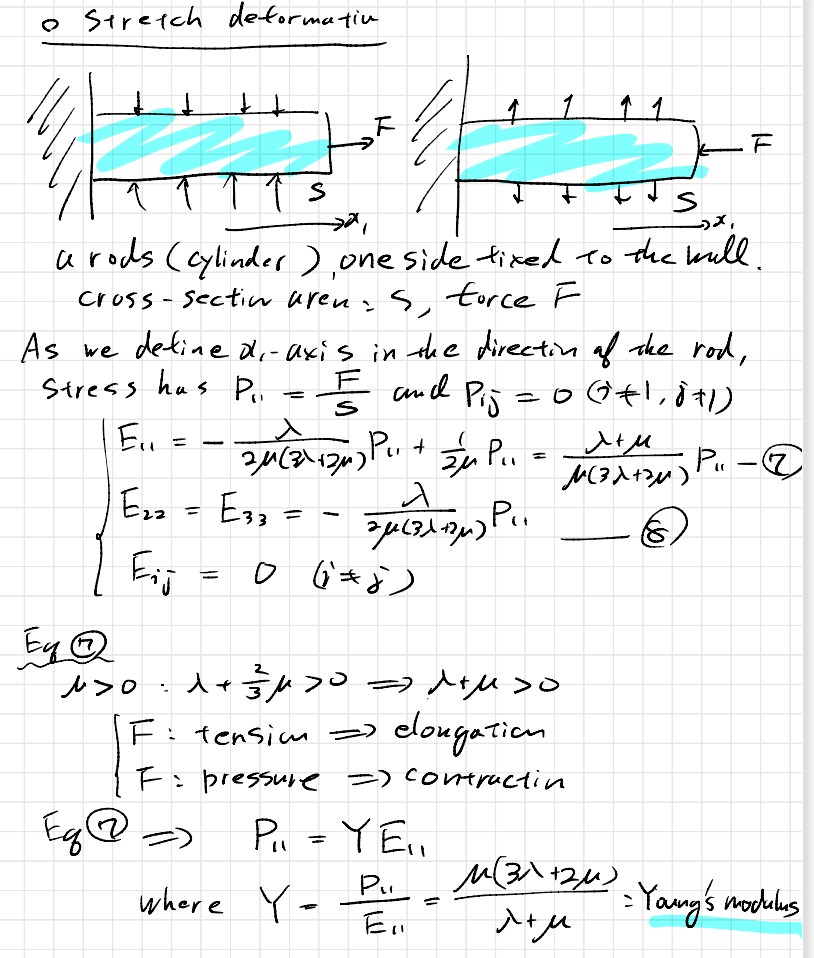 o Stretch deformation
F
F
S
S
x₁
x₁
a rods (cylinder), one side fixed to the wall.
cross-section area: S, force F
As we define x₁-axis in the direction of the rod,
stress has P₁₁ = F/S and Pᵢⱼ = 0 (i≠1, j≠1)
E₁₁ = - λ/(2μ(3λ+2μ)) P₁₁ + 1/(2μ) P₁₁ = (λ+μ)/(μ(3λ+2μ)) P₁₁ — ⑦
E₂₂ = E₃₃ = - λ/(2μ(3λ+2μ)) P₁₁ — ⑧
Eᵢⱼ = 0 (i≠j)
Eq ⑦
μ>0 : λ + 2/3 μ > 0 ⟹ λ+μ > 0
F : tension ⟹ elongation
F : pressure ⟹ contraction
Eq ⑦ ⟹ P₁₁ = Y E₁₁
where Y = P₁₁/E₁₁ = μ(3λ+2μ)/(λ+μ) : Young's modulus